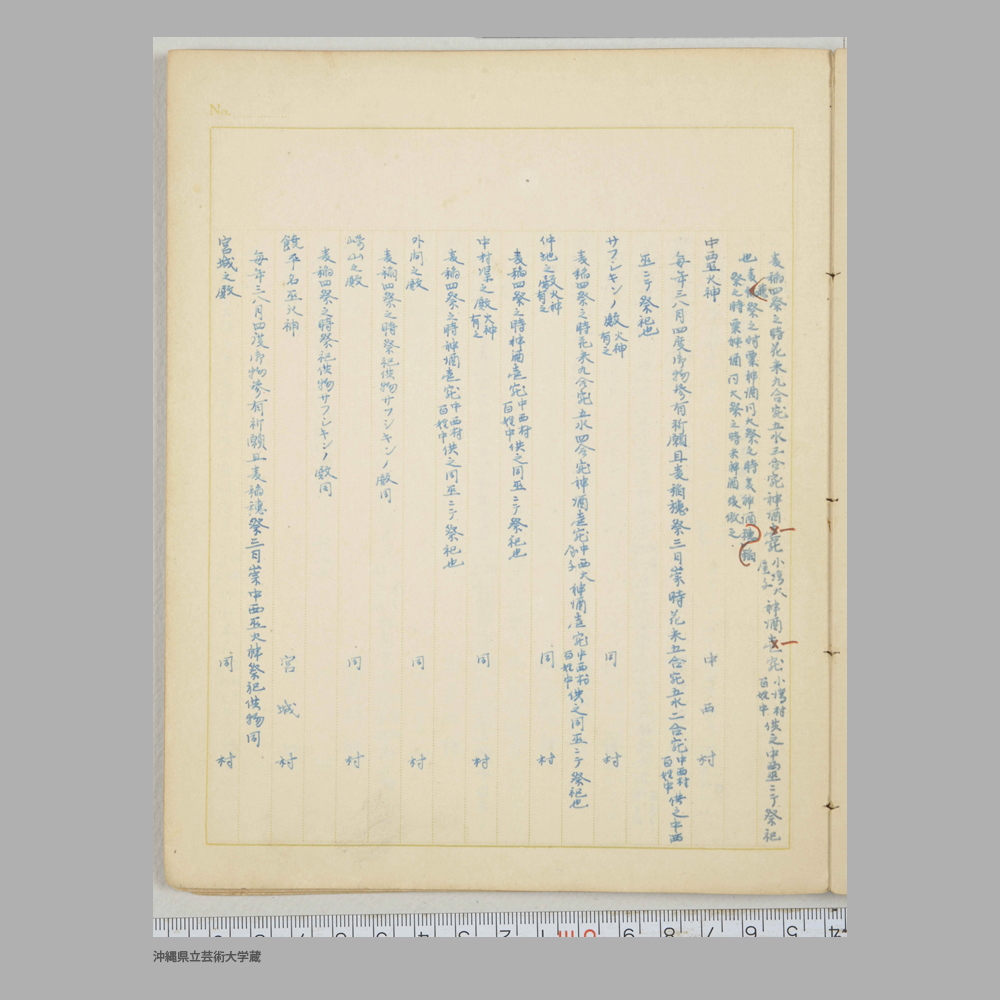 麦稲四祭之時花米九合宛五水三合宛神酒一宛小湾大屋子神酒一宛小湾村百姓中供之中西巫ニテ祭祀
也麦穂祭之時粟神酒同大祭之時麦神酒穂稲
祭之時粟神酒同大祭之時米神酒後敬之
中西巫火神 中西村
毎年三八月四度御物参有祈願且麦稲穂祭三日崇時花米五合宛五水二合宛中西村百姓中供之中西
巫ニテ祭祀也
サフシキンノ殿火神有之 同村
麦稲四祭之時花米九合宛五水四合宛神酒壱宛中西大屋子神酒壱宛中西村百姓中供之同巫ニテ祭祀也
仲地之殿火神有之 同村
麦稲四祭之時神酒壱宛中西村百姓中供之同巫ニテ祭祀也
中村渠之殿火神有之 同村
麦稲四祭之時神酒壱宛中西村百姓中供之同巫ニテ祭祀也
外間之殿 同村
麦稲四祭之時祭祀供物サフシキンノ殿同
崎山之殿 同村
麦稲四祭之時祭祀供物サフシキンノ殿同
饒平名巫火神 宮城村
毎年三八月四度御物参有祈願且麦稲穂祭三日崇中西巫火神祭祀供物同
宮城之殿 同村
No.
沖縄県立芸術大学蔵